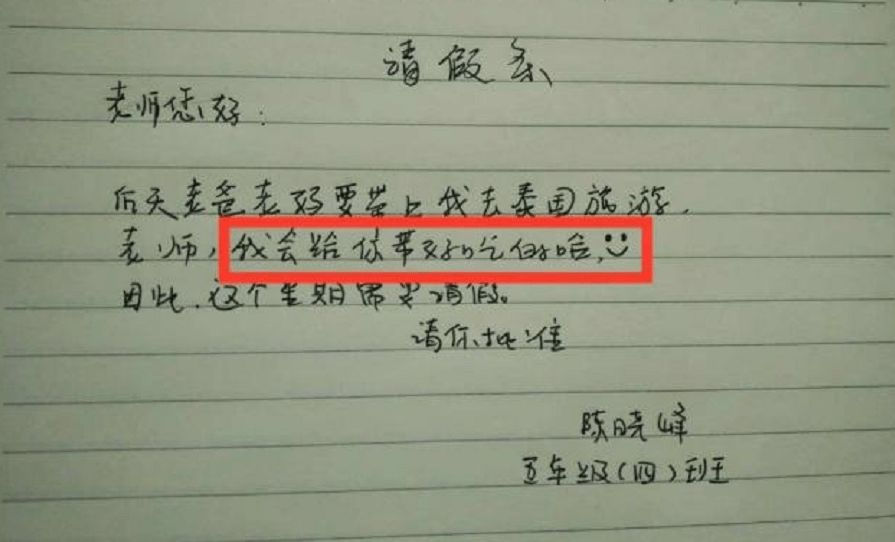 请假条
老师您好：
后天老爸老妈要带上我去泰国旅游，
老师，我会给你带好吃的哈，
因此，这个星期需要请假。
请你批准
陈晓峰
五年级（四）班